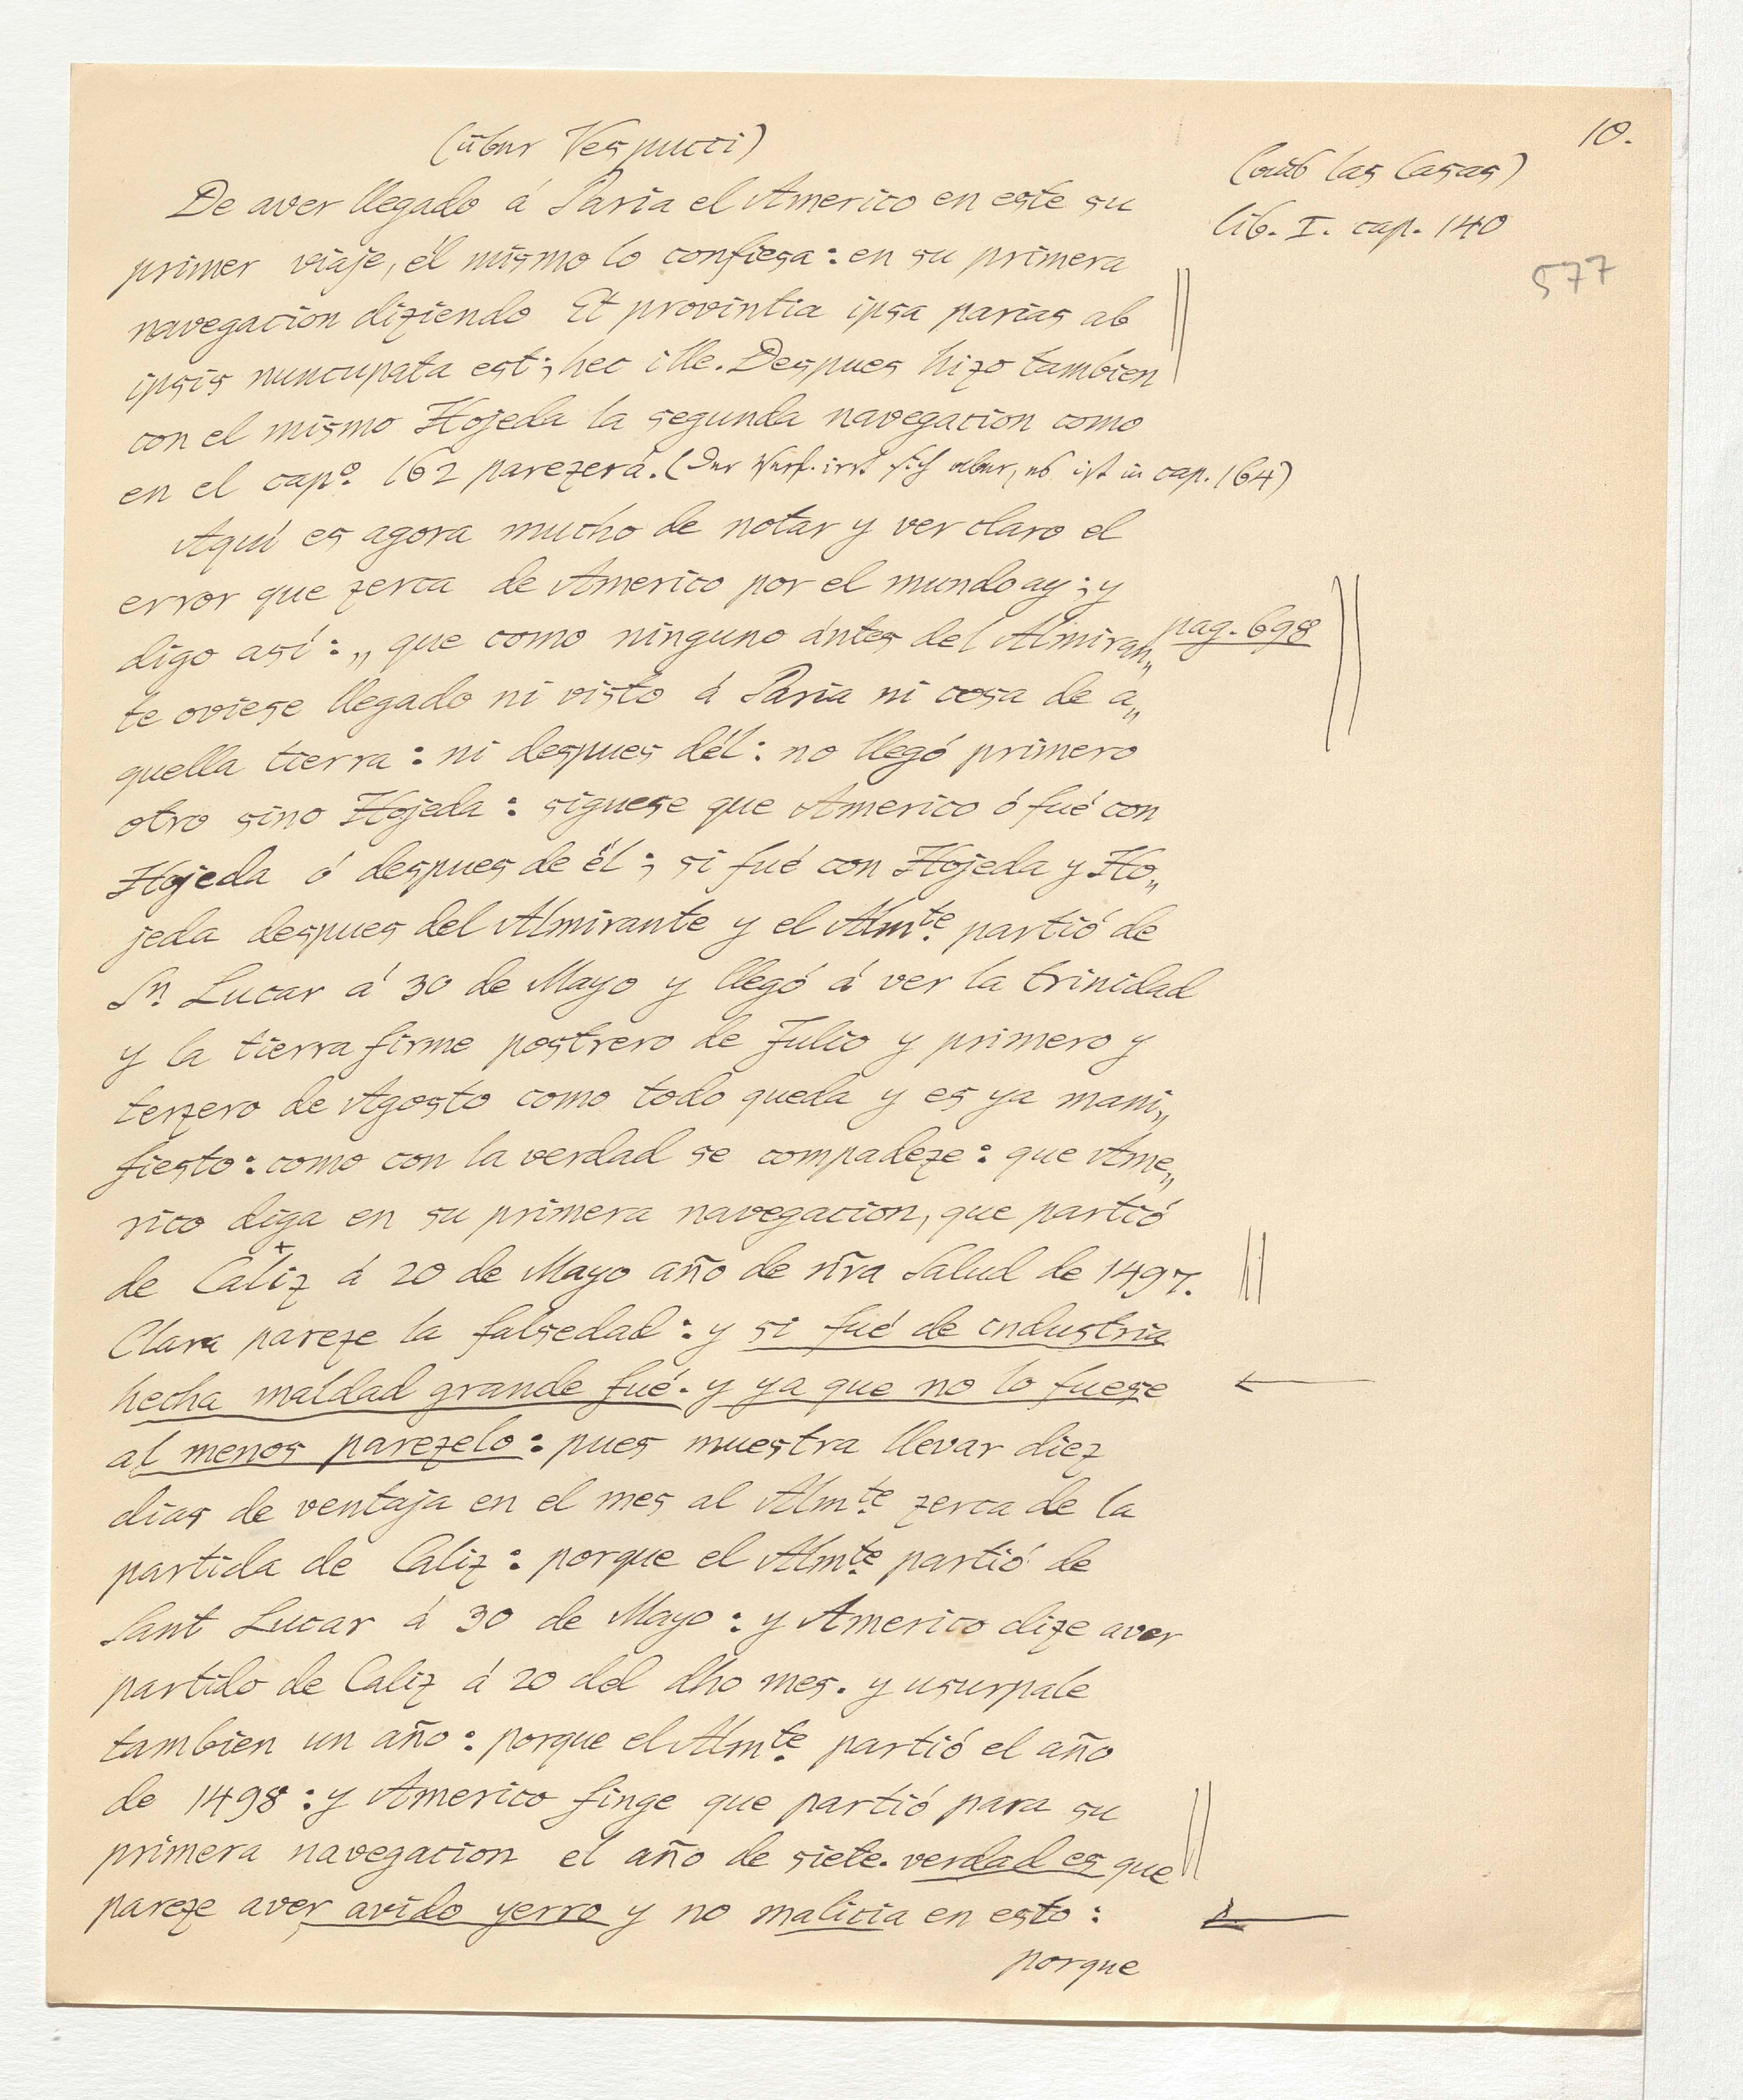 10.
(über Vespucci)
(aus las Casas)
lib. I. cap. 140
577
De aver llegado á Paria el Americo en este su
primer viaje, él mismo lo confiesa: en su primera
navegacion diziendo Et provintia ipsa parias ab
ipsis nuncupata est; hec ille. Despues hizo tambien
con el mismo Hojeda la segunda navegacion como
en el cap.º 162 parezerá. (Der Verf. irrt sich aber, es ist in cap. 164)
Aquí es agora mucho de notar y ver claro el
error que zerca de Americo por el mundo ay; y
digo así: „que como ninguno ántes del Almiran„
pag. 698
te oviese llegado ni visto á Paria ni cosa de a„
quella tierra: ni despues dél: no llegó primero
otro sino Hojeda: siguese que Americo ó fué con
Hojeda ó despues de él; si fué con Hojeda y Ho„
jeda despues del Almirante y el Almte. partió de
Sn. Lucar á 30 de Mayo y llegó á ver la trinidad
y la tierra firme postrero de Julio y primero y
terzero de Agosto como todo queda y es ya mani„
fiesto: como con la verdad se compadeze: que Ame„
rico diga en su primera navegacion, que partió
de Caliz á 20 de Mayo año de nr̃a Salud de 1497.
Clara pareze la falsedad: y si fué de industria
hecha maldad grande fué. y ya que no lo fuese
al menos parezelo: pues muestra llevar diez
dias de ventaja en el mes al Almte. zerca de la
partida de Caliz: porque el Almte. partió de
Sant Lucar á 30 de Mayo: y Americo dize aver
partido de Caliz á 20 del dho mes. y usurpale
tambien un año: porque el Almte. partió el año
de 1498: y Americo finge que partió para su
primera navegacion el año de siete. verdad es que
pareze aver avido yerro y no malicia en esto:
porque